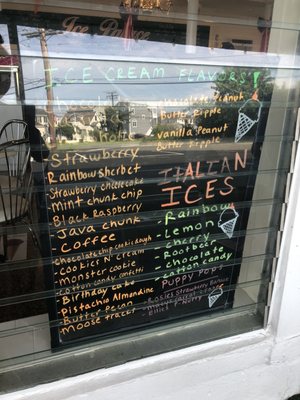 Ice Palace
ICE CREAM FLAVORS!
chocolate Peanut
Butter Ripple
Vanilla Peanut
Butter Ripple
- Strawberry
- Rainbow Sherbet
- Strawberry cheesecake
- mint chunk chip
- Black Raspberry
- Java chunk
- Coffee
- chocolate chip cookie dough
- Cookies N Cream
- Monster cookie
- Cotton candy confetti
- Birthday cake
- Pistachio Almondine
- Butter Pecan
- Moose tracks
ITALIAN
ICES
- Rainbow
- Lemon
- cherry
- Rootbeer
- chocolate
- cotton candy
PUPPY POPS
- Rosies Strawberry Banana
- Ellie's Nutty